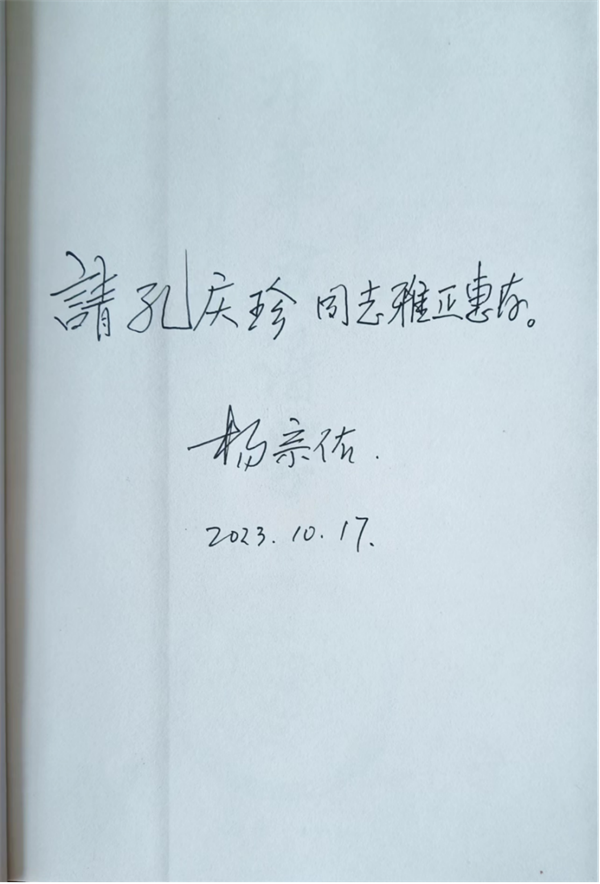 請孔庆珍同志雅正惠存。
杨宗佑.
2023.10.17.